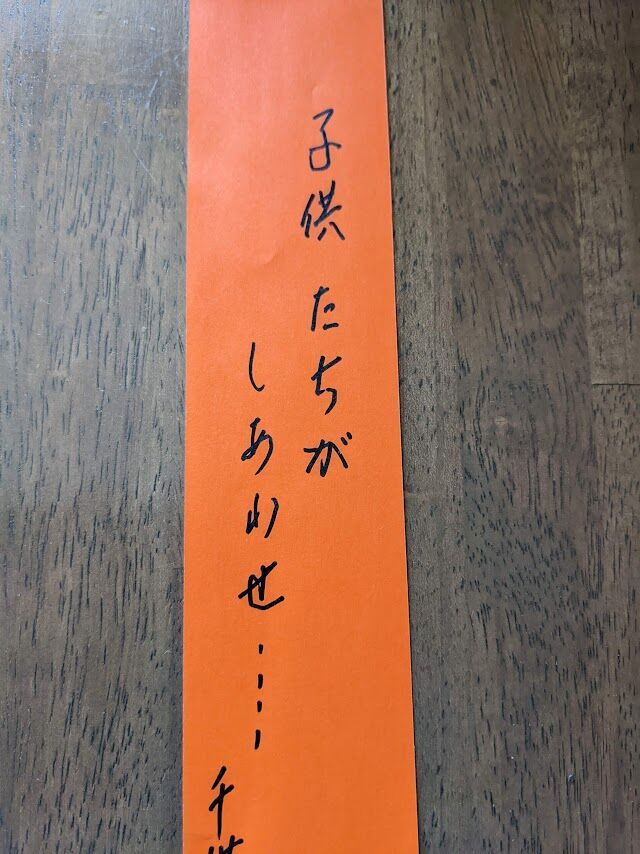 子供たちが
しあわせ・・・・
千